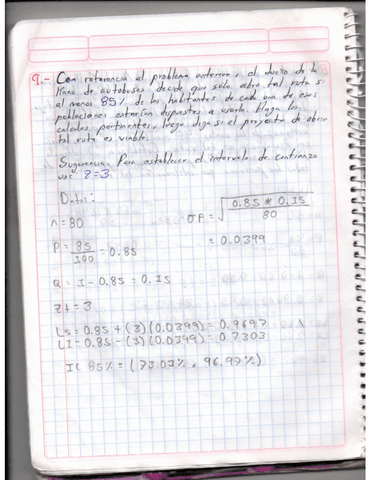 9.- Con referencia al problema anterior, el dueño de la
línea de autobuses, decide que sólo abre tal ruta si
al menos 85% de los habitantes de cada una de esas
poblaciones estarían dispuestos a usarla. Haga los
cálculos pertinentes, luego diga si el proyecto de abrir
tal ruta es viable.
Sugerencia. Para establecer el intervalo de confianza
use Z=3.
Datos:
n=80
σP = √ 0.85 * 0.15 / 80
= 0.0399
P = 85/100 = 0.85
Q = 1 - 0.85 = 0.15
Z± = 3
Ls = 0.85 + (3)(0.0399) = 0.9697
LI = 0.85 - (3)(0.0399) = 0.7303
IC 85% = (73.03%, 96.97%)